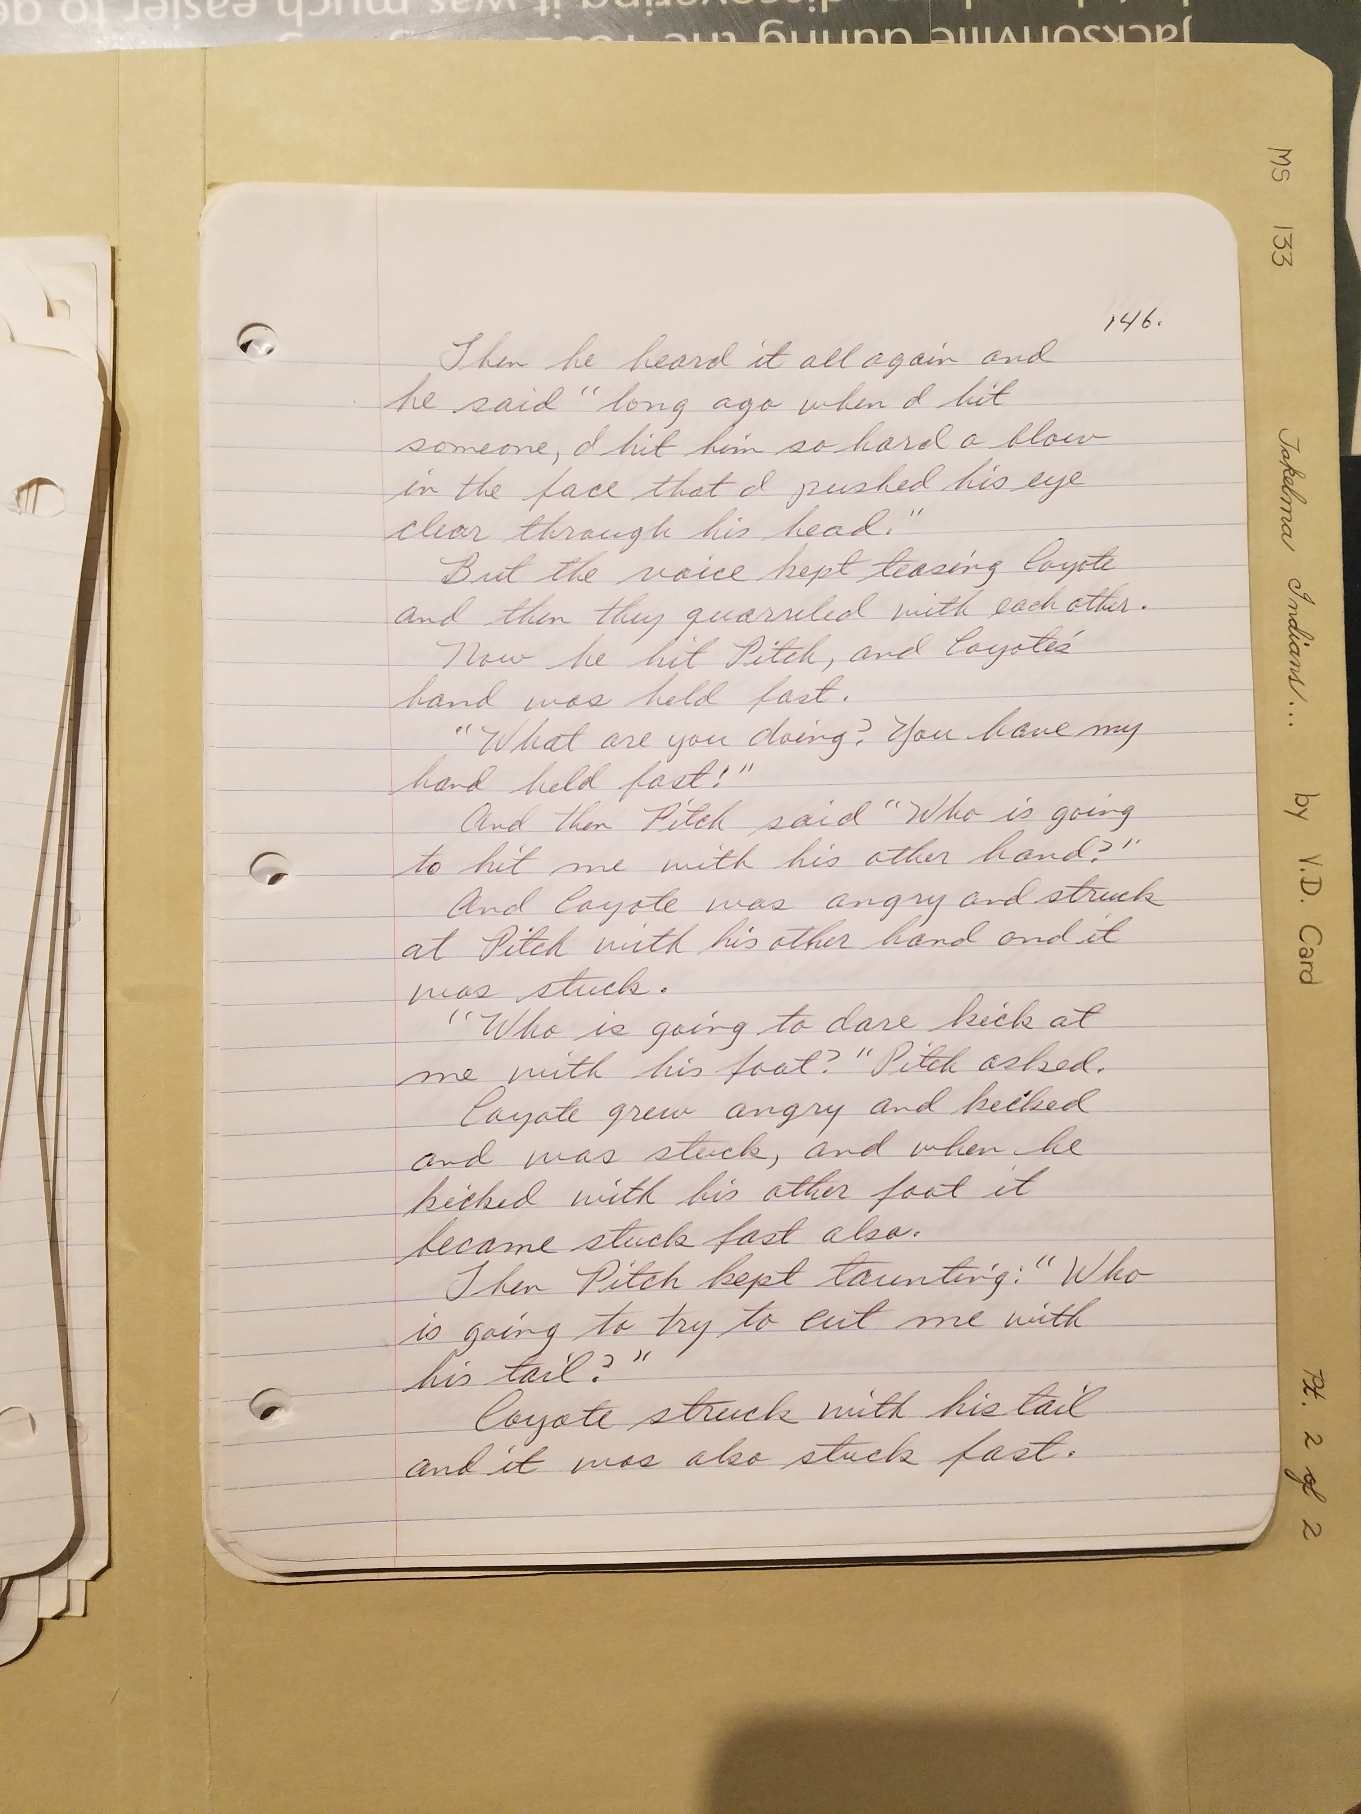 146.
Then he heard it all again and
he said "long ago when I hit
someone, I hit him so hard a blow
in the face that I pushed his eye
clear through his head."
But the voice kept teasing Coyote
and then they quarreled with each other.
Now he hit Pitch, and Coyote's
hand was held fast.
"What are you doing? You have my
hand held fast!"
And then Pitch said "Who is going
to hit me with his other hand?"
And Coyote was angry and struck
at Pitch with his other hand and it
was stuck.
"Who is going to dare kick at
me with his foot?" Pitch asked.
Coyote grew angry and kicked
and was stuck, and when he
kicked with his other foot it
became stuck fast also.
Then Pitch kept taunting: "Who
is going to try to cut me with
his tail?"
Coyote struck with his tail
and it was also stuck fast.
MS 133 Takelma Indians... by V.D. Card Pt. 2 of 2
jacksonville during the
discovering it was much easier to